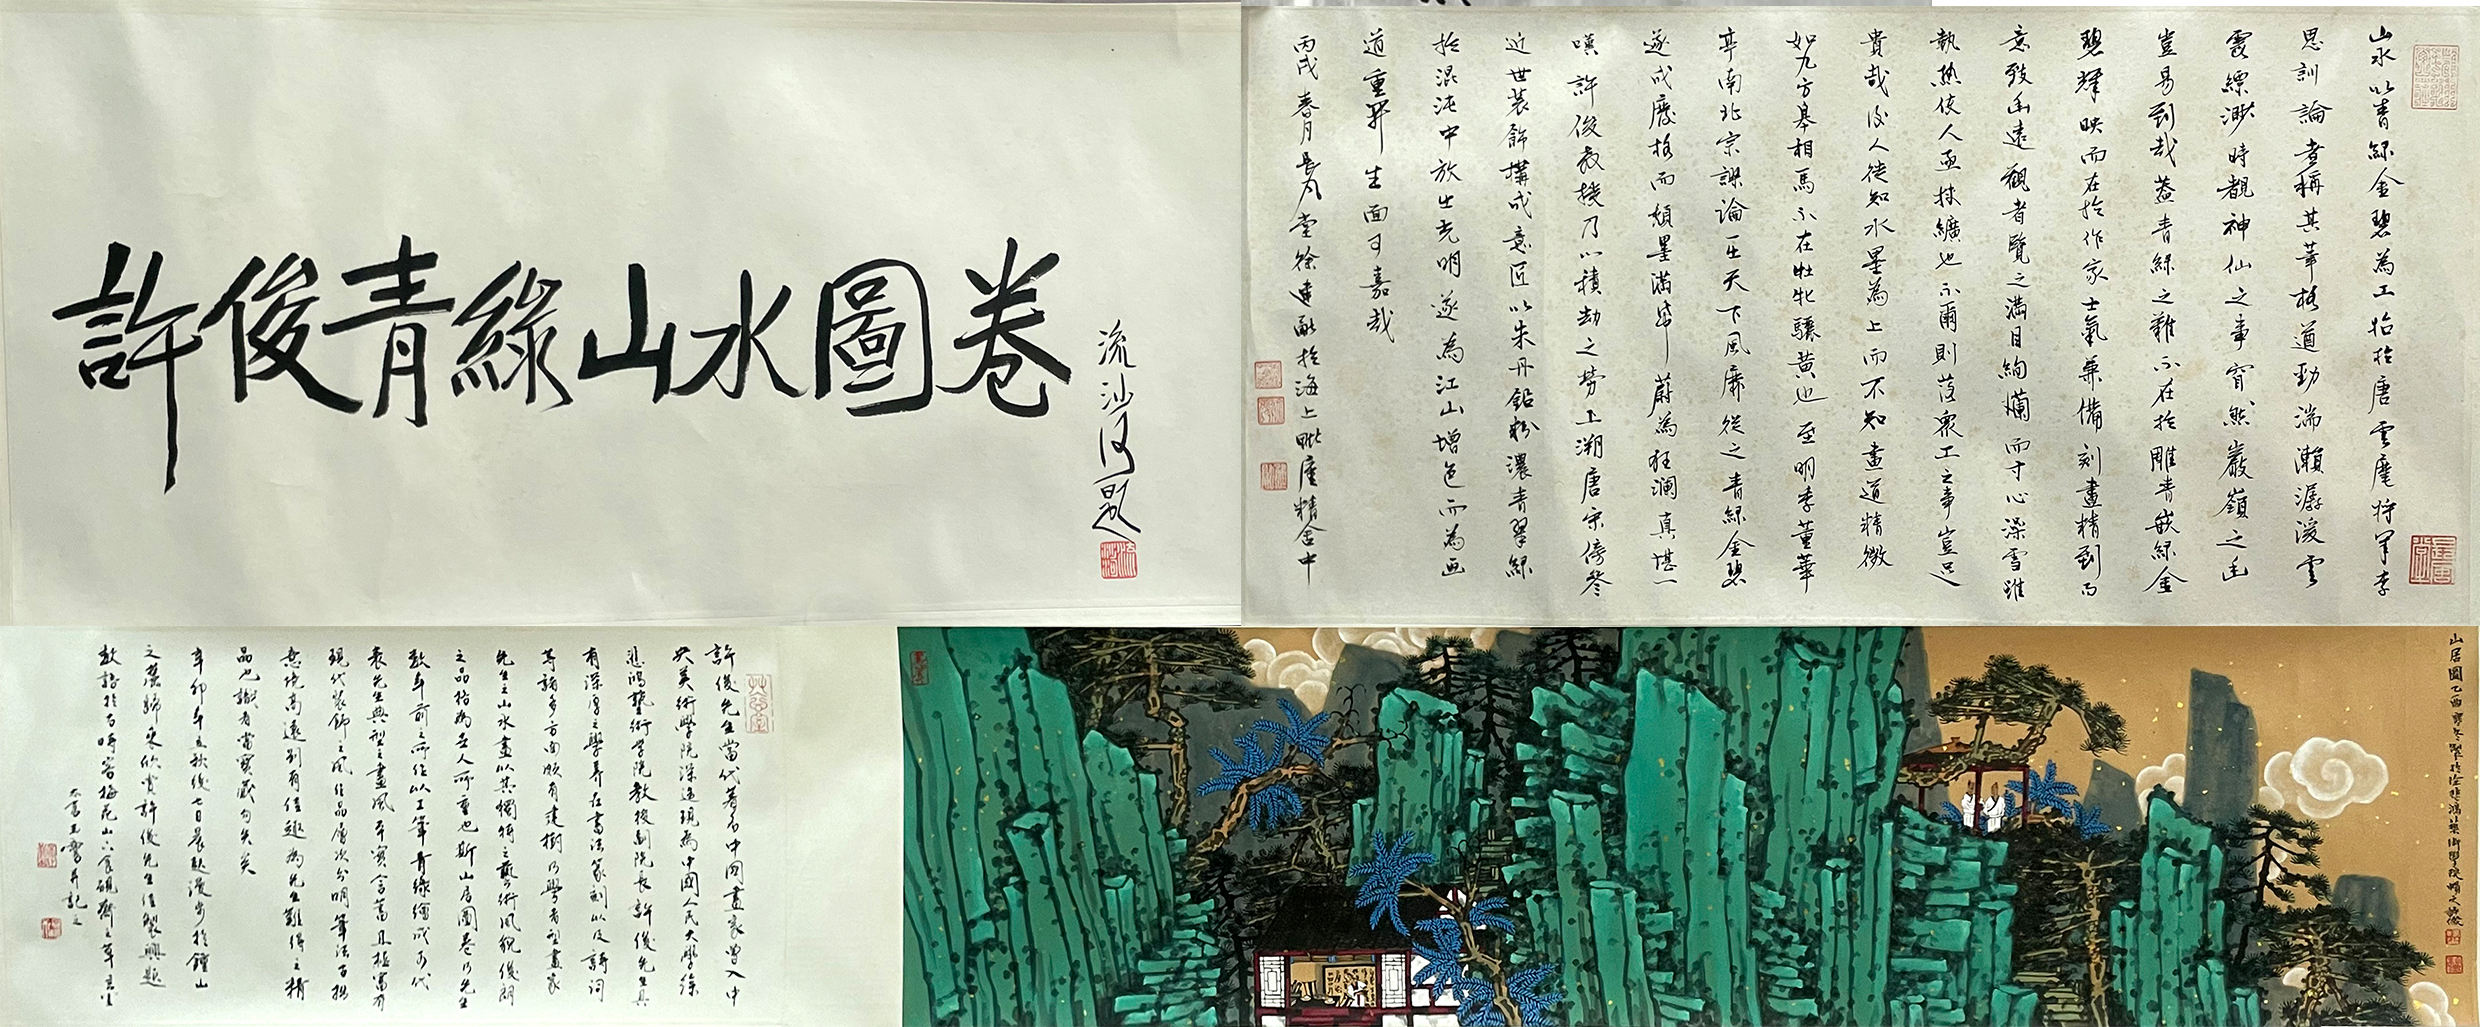 許俊青綠山水圖卷
流沙河題
流沙河
山水以青綠金碧為工始於唐雲麾將軍李
思訓論者稱其筆格遒勁湍瀨潺湲雲
霞縹渺時覩神仙之事窅然巖嶺之幽
豈易到哉蓋青綠之難不在於雕青嵌綠金
碧輝映而在於作家士氣兼備刻畫精到而
意致幽遠觀者覽之滿目絢爛而寸心澡雪雖
執熱使人亟挾纊也不爾則落衆工之事豈足
貴哉後人徒知水墨為上而不知畫道精微
如九方皋相馬不在牡牝驪黃也至明季董華
亭南北宗謬論一出天下風靡從之青綠金碧
遂成廢格而頹墨滿紙蔚為狂瀾真堪一
嘆許俊教授乃以積劫之勞上溯唐宋傍參
近世裝飾構成意匠以朱丹鉛粉濃青翠綠
於混沌中放出光明遂為江山增色而為画
道重開生面可嘉哉
丙戌春月長風堂徐建融於海上毗廬精舍中
許俊先生當代著名中國畫家曾入中
央美術學院深造現為中國人民大學徐
悲鴻藝術學院教授副院長許俊先生具
有深厚之學養在書法篆刻以及詩詞
等諸多方面頗有建樹乃學者型畫家
先生之山水畫以其獨特之藝術風貌俊朗
之品格為世人所重也斯山居圖卷乃先生
數年前之所作以工筆青綠繪成乃代
表先生典型之畫風平實含蓄且極富有
現代裝飾之風作品層次分明筆法古拙
意境高遠別有佳趣為先生難得之精
品也識者當寶藏勿失矣
辛卯年立秋後七日晨起漫步於鍾山
之麓歸來欣賞許俊先生佳製興起
數語於古時容梅花山下食硯齋之
并記之
山居圖乙酉於徐悲鴻藝術學院許俊